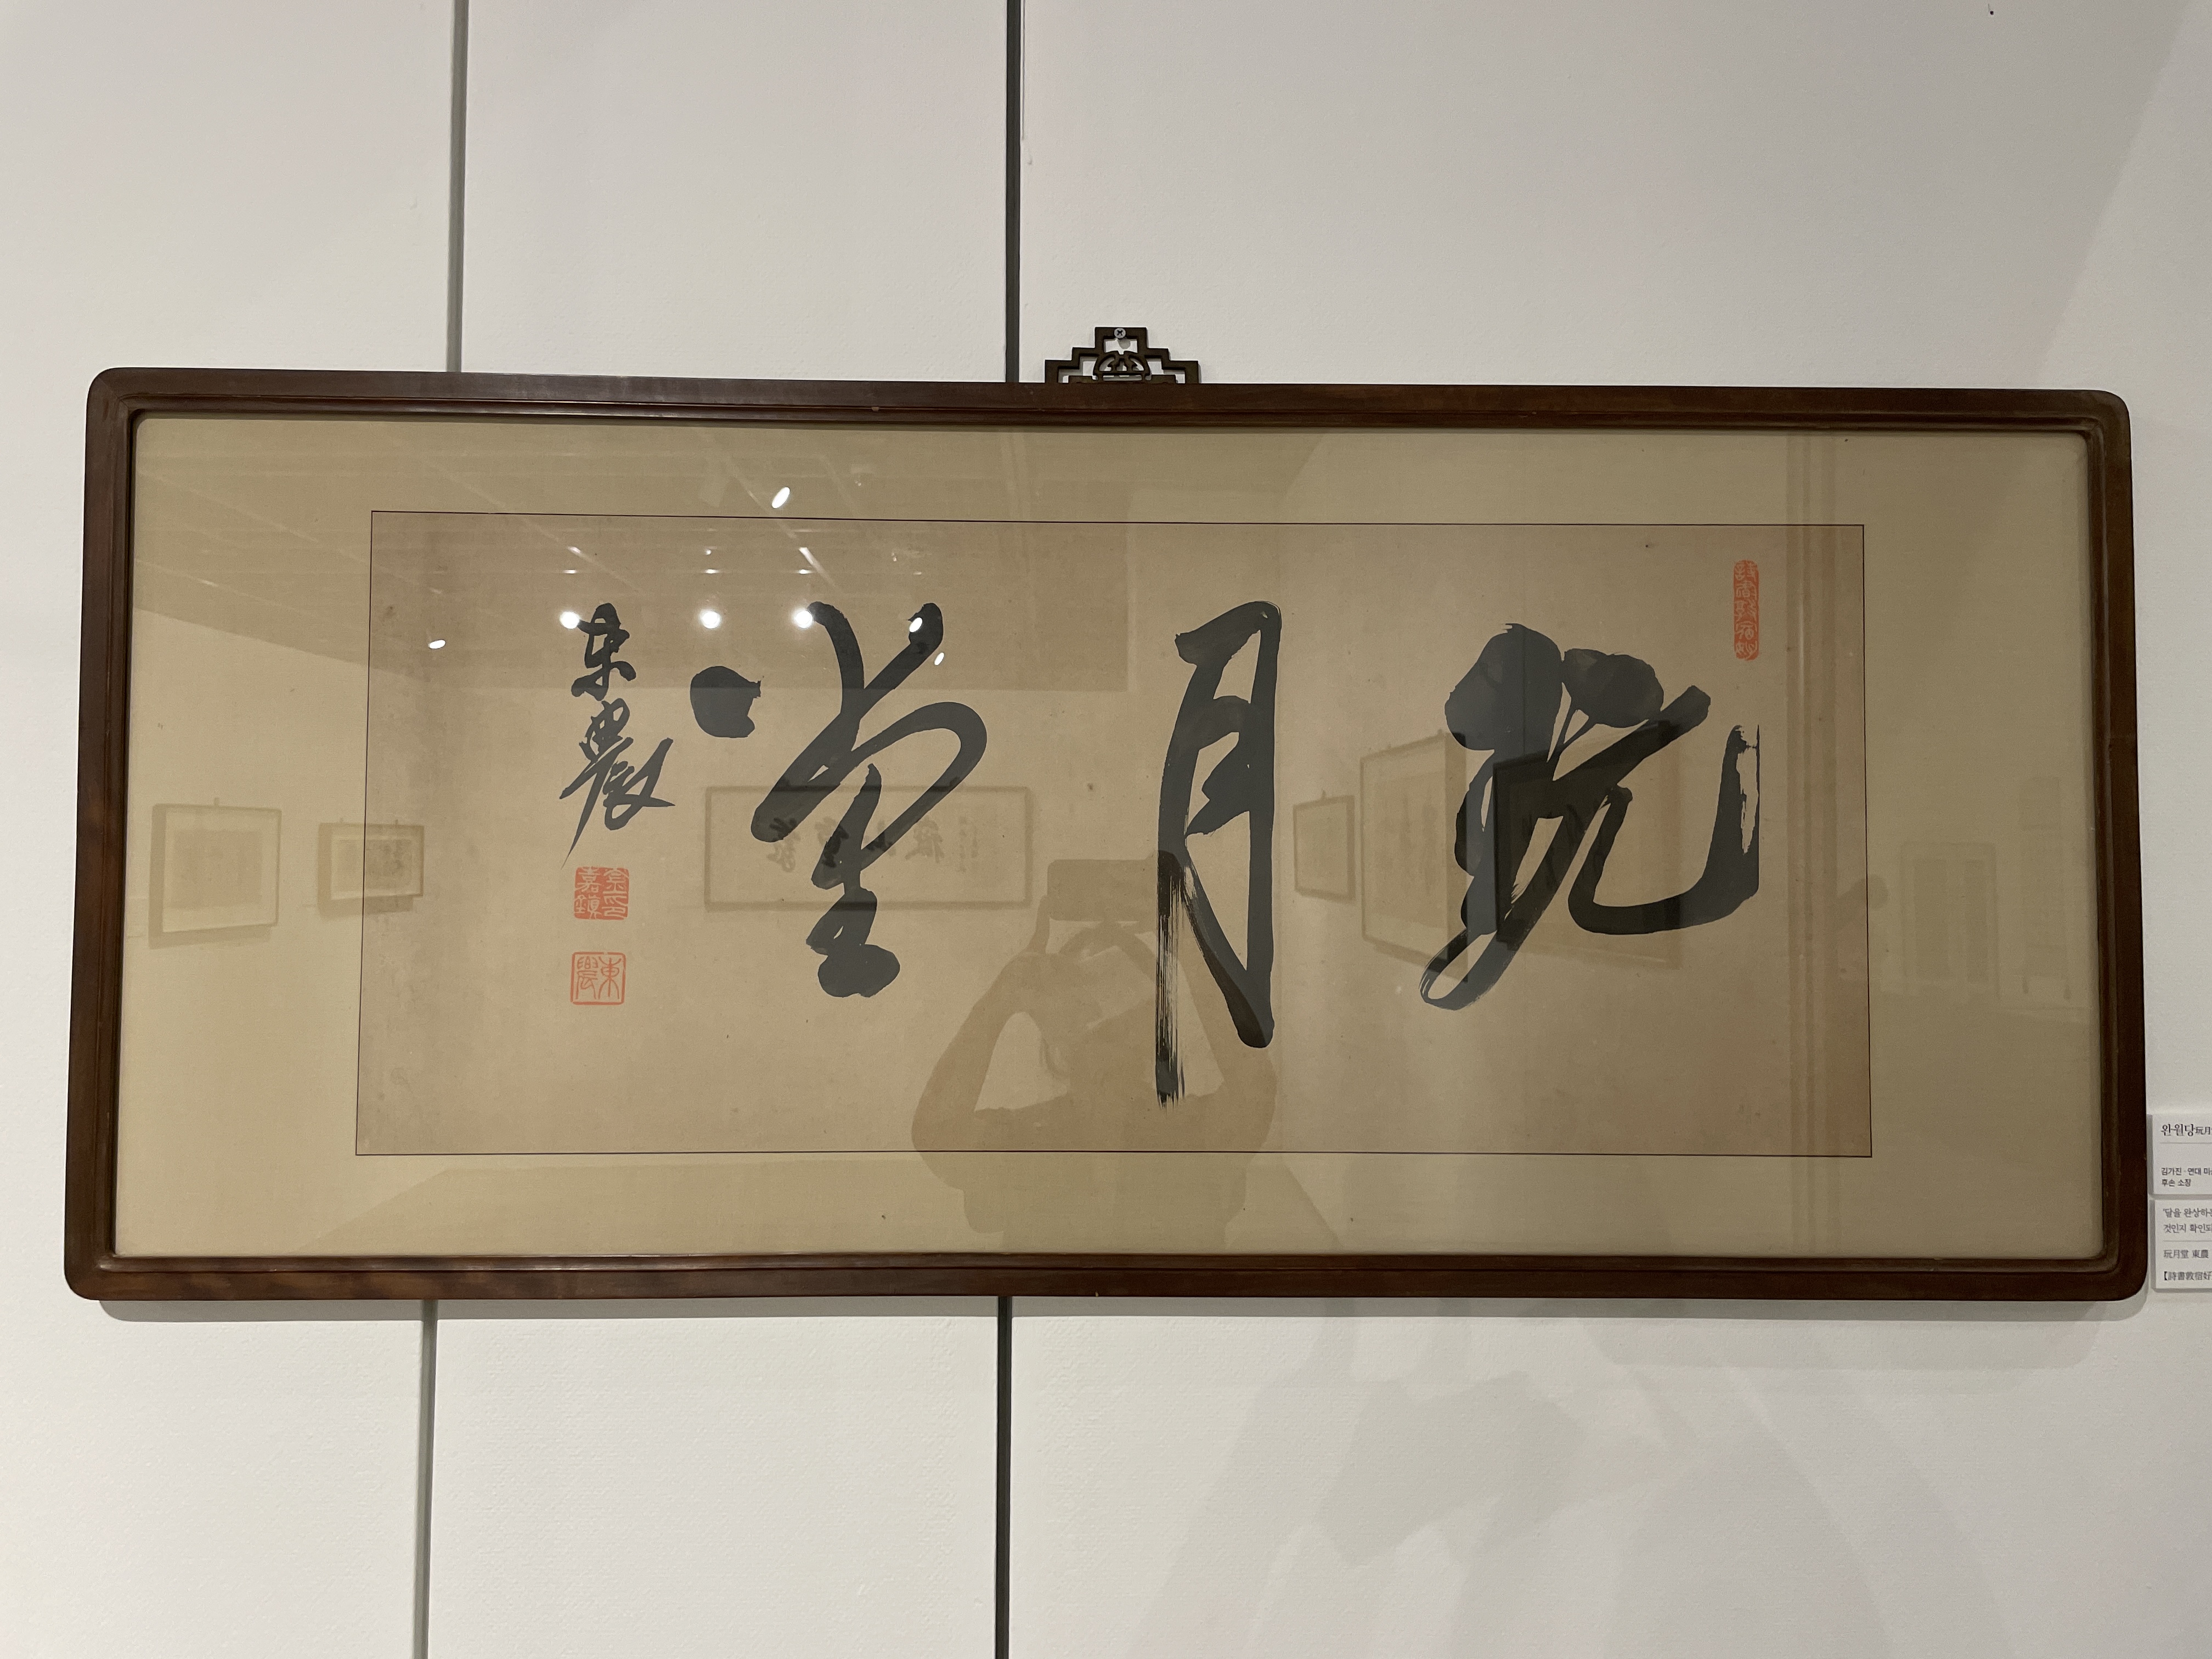 玩月堂
東農
詩書敦宿好
金嘉鎭印
東農
완월당玩月
김가진 · 연대 미
후손 소장
'달을 완상하는
것인지 확인되
玩月堂 東農
【詩書敦宿好